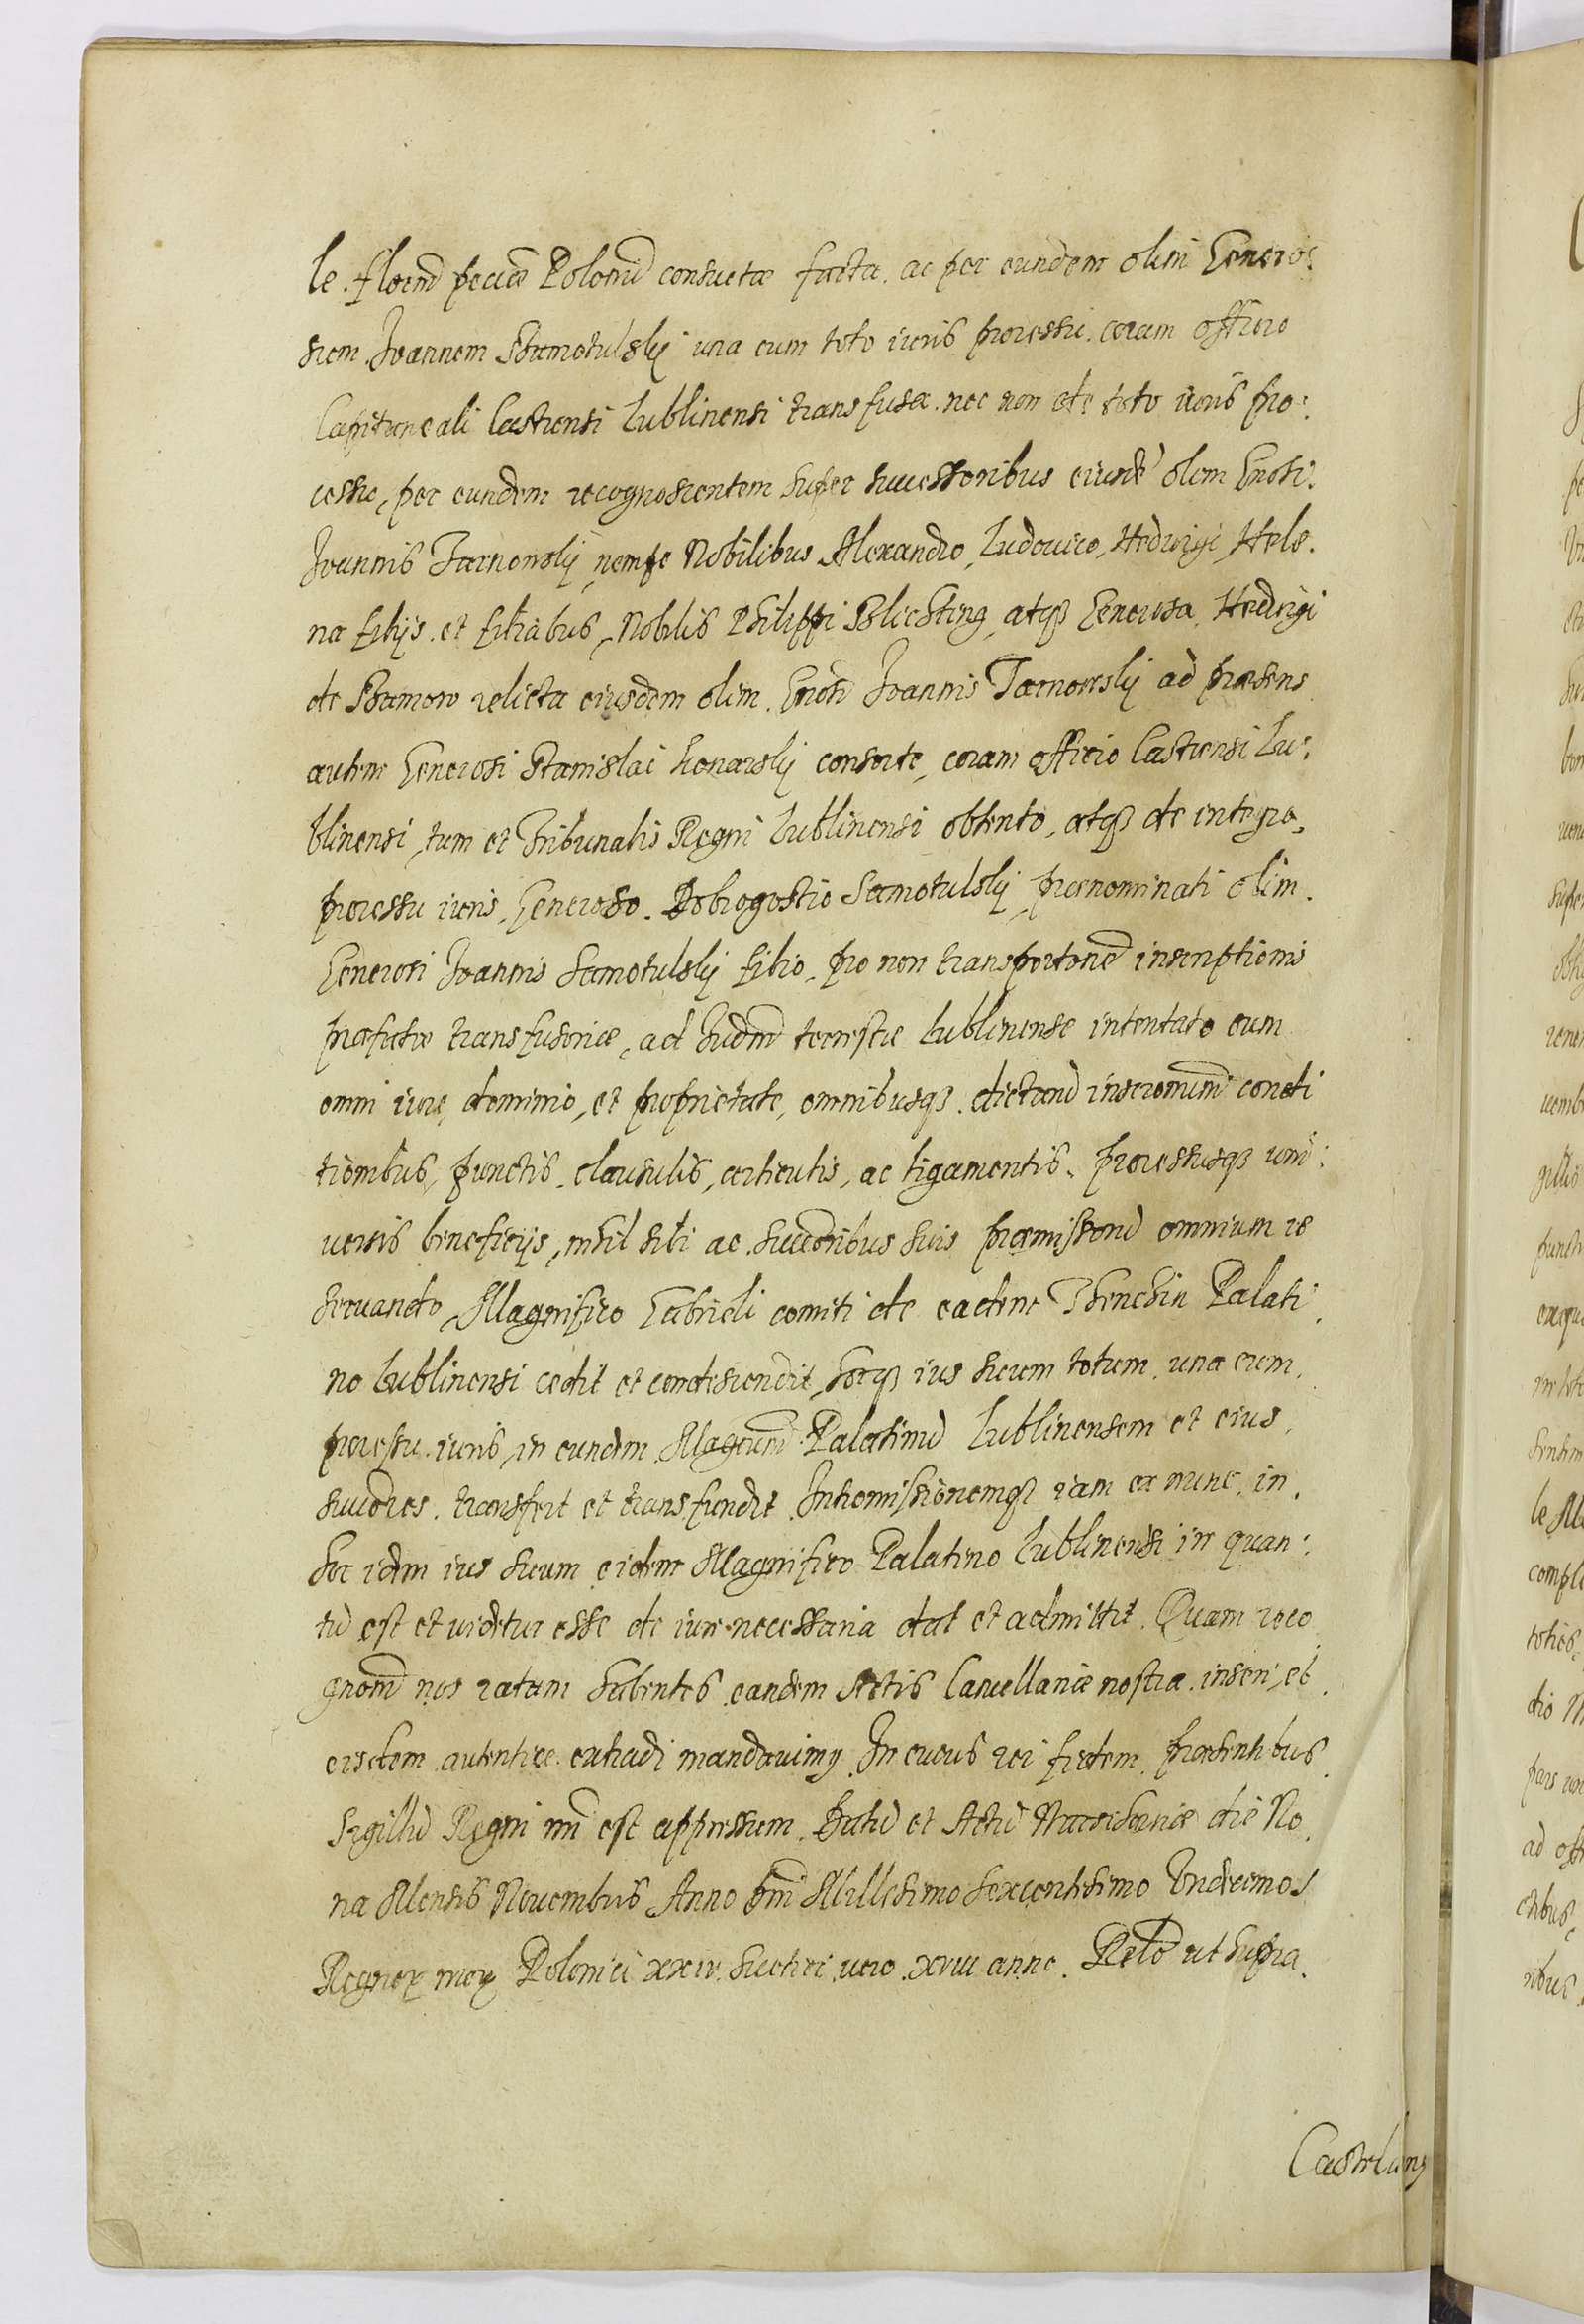 le. floꝛenũ pecuæ Polonũ consuetæ facta. ac per eundem olim Generos:
sum. Ioannem Shamotulskij una cum toto iuris processu. coram officio
Capitaneali Castrensi Lublinensi transfusa. nec non de toto iuris pro:
cessu, per eundem recognoscentem super successoribus eiusdẽ olim Gnosi:
Ioannis Tarnowskij, nempe Nobilibus Alexandro, Ludouico, Heduigi, Hele.
na filijs. et filiabus, Nobilis Philippi Blichting, atqꝫ Generosa, Hedvigi
de Shamow relicta eiusdem olim. Gnosi Ioannis Tarnowskij ad præsens
autem Generosi Stanislai Konarskij consorte, coram officio Castrensi Lu:
blinensi, tum et Tribunalis Regni Lublinensi obtento, atqꝫ de integro,
processu iuris, Generoso. Dobrogostio Samotulskij, prænominati olim.
Generosi Ioannis Samotulskij filio, pro non transportonẽ inscriptionis
præfatæ transfusoriæ, ad Iudiũ terrestre Lublinense intentato cum
omni iure, dominio, et proprietate, omnibusqꝫ. dictarũ inscronum condi
tionibus, punctis, clausulis, articulis, ac ligamentis. processusqꝫ uni:
uersis beneficijs, nihil sibi ac. succõribus suis præmissorũ omnium re
seruando, Magnifico Gabrieli comiti de eadem Thenchin Palati.
no Lublinensi cedit et condescendit, hocqꝫ ius suum totum, una cum,
processu. iuris, in eundem Magcum Palatinũ Lublinensem et eius,
succõres. transfert et transfundit. Intromissionemqꝫ iam ex nunc, in,
hoc idem ius suum eidem Magnifico Palatino Lublinensi in quan:
tũ est et videtur esse de iure necessaria dat et admittit. Quam reco
gnonẽ nos ratam habentes, eandem Actis Cancellariæ nostræ. inseri, et
eisdem. autentice. extradi mandauimꝯ. In cuius rei fidem. præsentibus.
Sigillũ Regni nrĩ est appressum. Datũ et Actũ Warschauiæ die No.
na Mensis Nouembris Anno Dnĩ Millesimo Sexcentesimo Undecimo.
Regnoꝝ nroꝝ Poloniæ xxiv. Suetici, uero xviii anno. Relõ ut supra.
Castelanꝯ